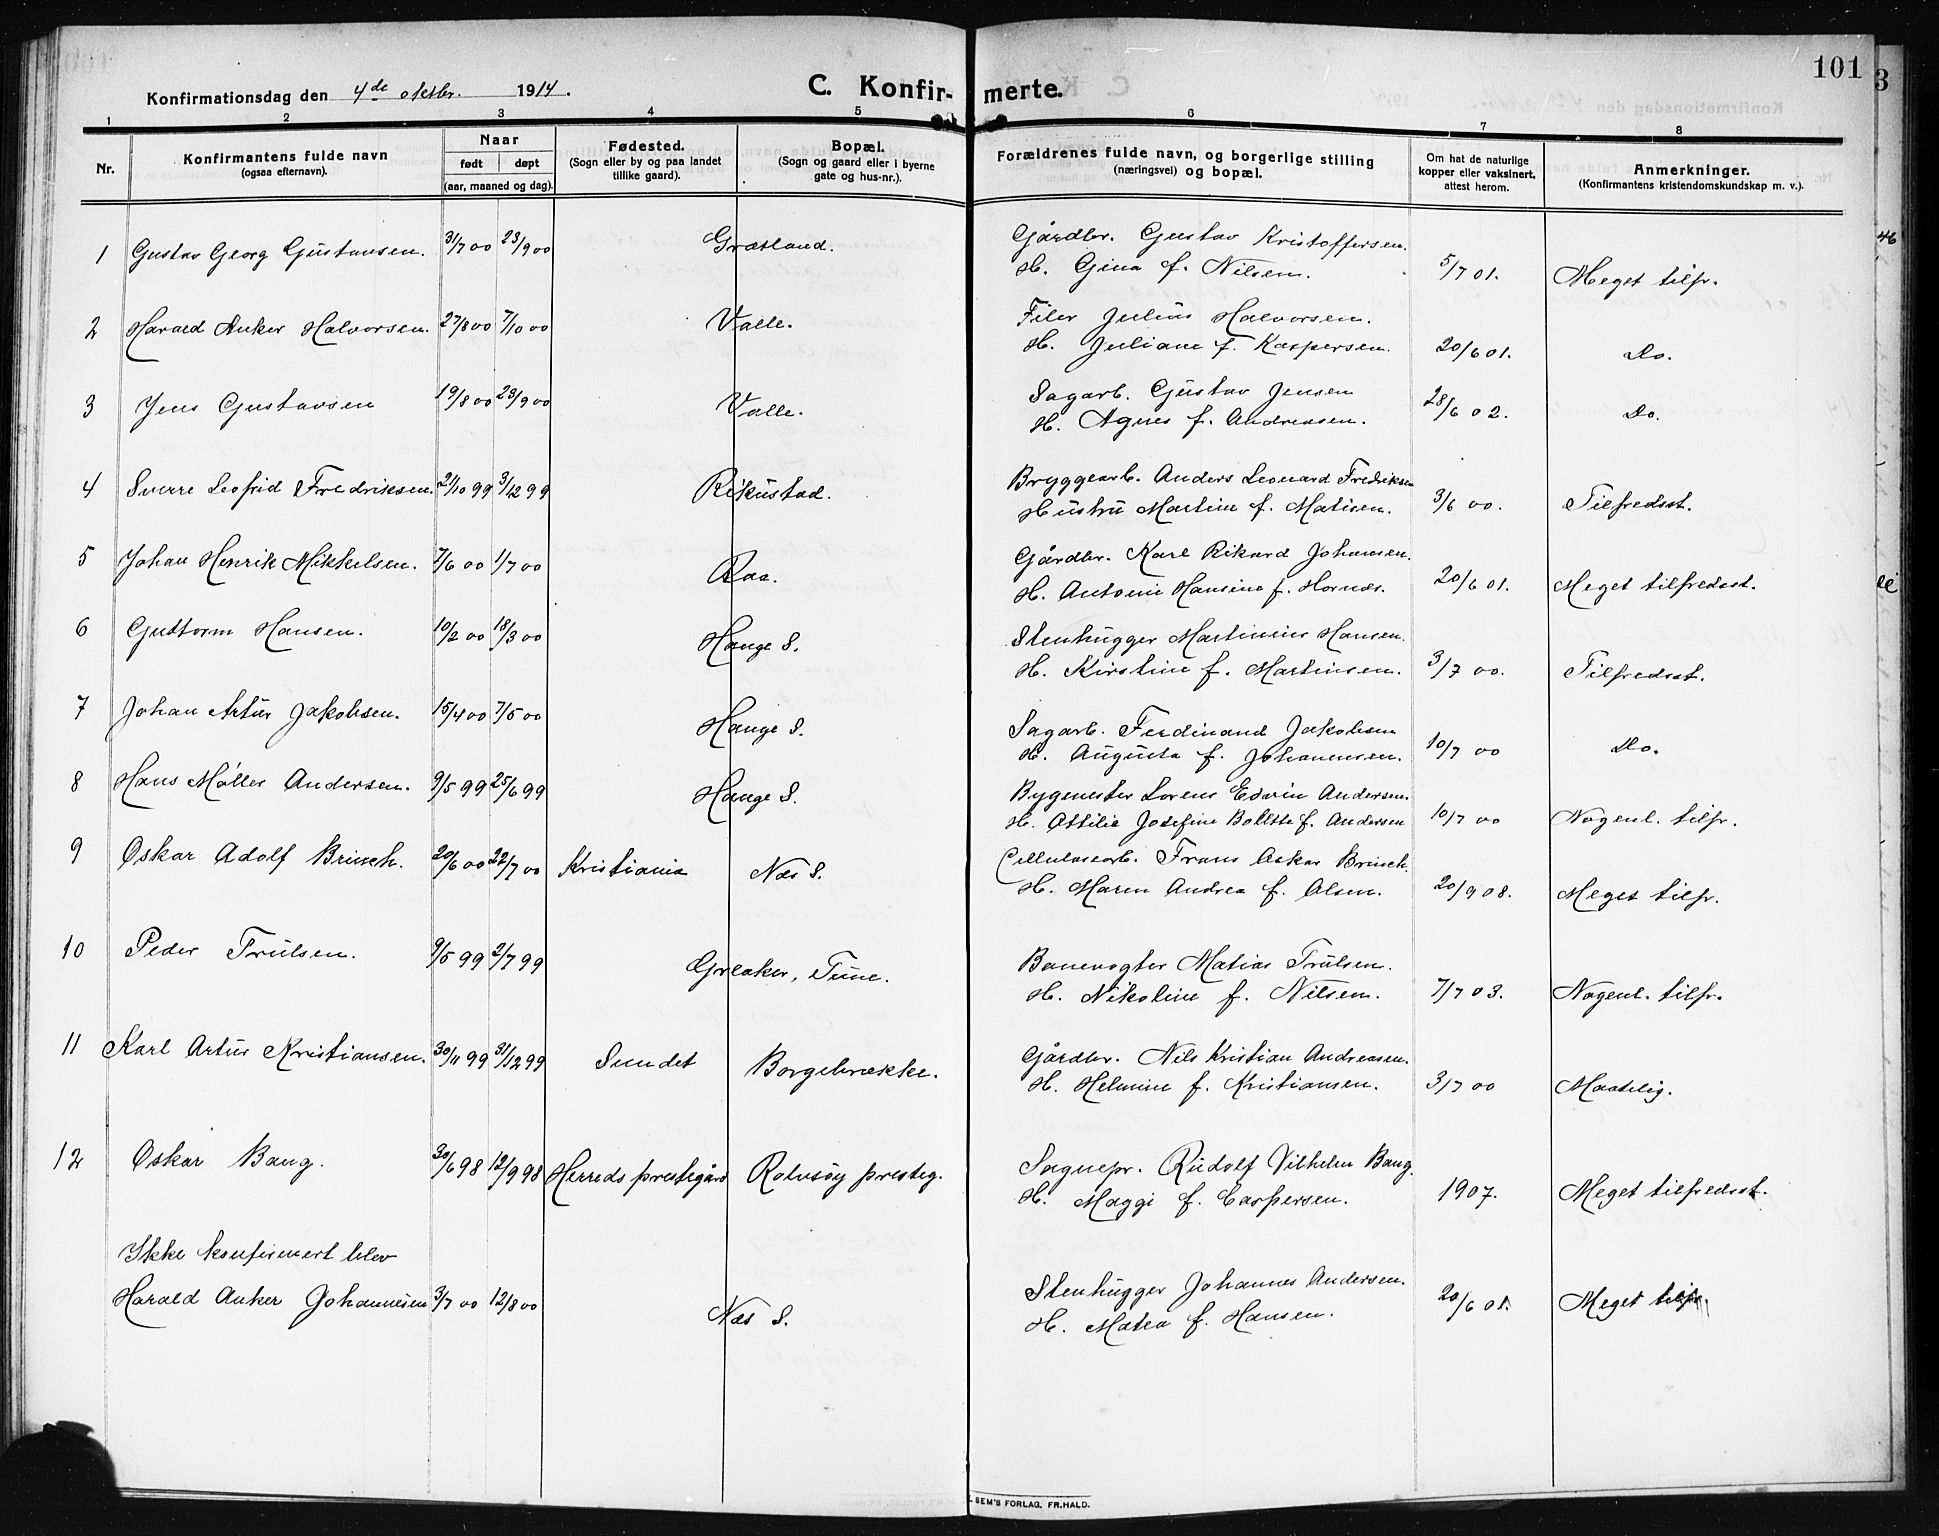 101
Konfirmationsdag den 4de oktbr. 1914.
C. Konfirmerte.
1 2 3 4 5 6 7 8
Nr.
Konfirmantens fulde navn
(ogsaa efternavn).
Naar
født døpt
(aar, maaned og dag).
Fødested.
(Sogn eller by og paa landet
tillike gaard).
Bopæl.
(Sogn og gaard eller i byerne
gate og hus-nr.).
Forældrenes fulde navn, og borgerlige stilling
(næringsvei) og bopæl.
Om hat de naturlige
kopper eller vaksinert,
attest herom.
Anmerkninger.
(Konfirmantens kristendomskundskap m. v.).
1 Gustav Georg Gustavsen. 3/7 00 23/9 00 Græsland. Gårdbr. Gustav Kristoffersen.
H. Gina f. Nilsen. 5/7 01. Meget tilfr.
2 Harald Anker Halvorsen. 27/8 00 7/10 00 Valle. Filer Julius Halvorsen.
H. Juliane f. Kaspersen. 20/6 01. Do.
3 Jens Gustavsen 19/8 00 23/9 00 Valle. Sagarb. Gustav Jensen
H. Agnes f. Andreasen. 28/6 02. Do.
4 Sverre Leofrid Fredriksen. 21/10 99 3/12 99 Rikustad. Bryggearb. Anders Leonard Fredriksen
Hustru Martine f. Matisen. 3/6 00. Tilfredsst.
5 Johan Henrik Mikkelsen. 7/6 00 1/7 00 Raa. Gårdbr. Karl Rikard Johansen.
H. Antonie Hansine f. Hornæs. 20/6 01. Meget tilfredsst.
6 Guttorm Hansen. 10/2 00 18/3 00 Hauge S. Stenhugger Martinius Hansen.
H. Kirstine f. Martinsen. 3/7 00. Tilfredsst.
7 Johan Artur Jakobsen. 15/4 00 7/5 00 Hauge S. Sagarb. Ferdinand Jakobsen
H. Augusta f. Johannesen. 10/7 00 Do.
8 Hans Møller Andersen. 9/5 99 25/6 99 Hauge S. Bygmester Lorens Edvin Andersen.
H. Ottilie Josefine Bollette f. Andersen 10/7 00 Nogenl. tilfr.
9 Oskar Adolf Brinch. 20/6 00 22/7 00 Kristiania Næs S. Cellulosearb. Frans Oskar Brinch.
H. Maren Andrea f. Olsen. 20/9 08. Meget tilfr.
10 Peder Trulsen. 9/5 99 2/7 99 Greaker, Tune. Banevogter Matias Trulsen.
H. Nikoline f. Nilsen. 7/7 03. Nogenl. tilfr.
11 Karl Artur Kristiansen. 30/11 99 31/12 99 Sundet Borgebrække. Gårdbr. Nils Kristian Andreasen.
H. Helmine f. Kristiansen. 3/7 00 Maatelig.
12 Oskar Bang. 30/6 98 12/9 98 Herreds prestegård Rolvsøy presteg. Sognepr. Rudolf Vilhelm Bang.
H. Maggi f. Caspersen. 1907. Meget tilfredsst.
Ikke konfirmert blev
Harald Anker Johannesen 3/7 00 12/8 00 Næs S. Stenhugger Johannes Andersen.
H. Matea f. Hansen. 20/6 01. Meget tilfr.
SEM'S FORLAG, FR.HALD.